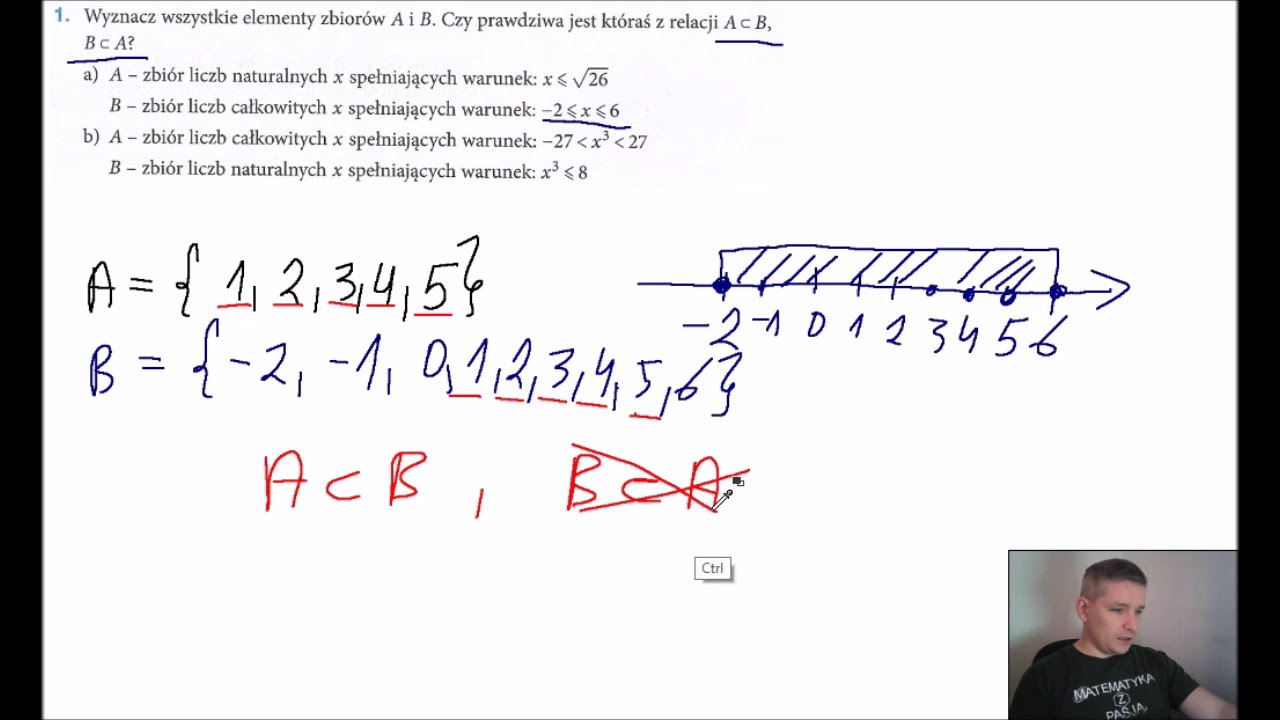 1. Wyznacz wszystkie elementy zbiorów A i B. Czy prawdziwa jest któraś z relacji A ⊂ B,
B ⊂ A?
a) A – zbiór liczb naturalnych x spełniających warunek: x ⩽ √26
B – zbiór liczb całkowitych x spełniających warunek: −2 ⩽ x ⩽ 6
b) A – zbiór liczb całkowitych x spełniających warunek: −27 < x³ < 27
B – zbiór liczb naturalnych x spełniających warunek: x³ ⩽ 8
A = { 1, 2, 3, 4, 5}
-2 -1 0 1 2 3 4 5 6
B = {-2, -1, 0, 1, 2, 3, 4, 5, 6}
A ⊂ B , B ⊂ A
Ctrl
MATEMATYKA
Z
PASJĄ